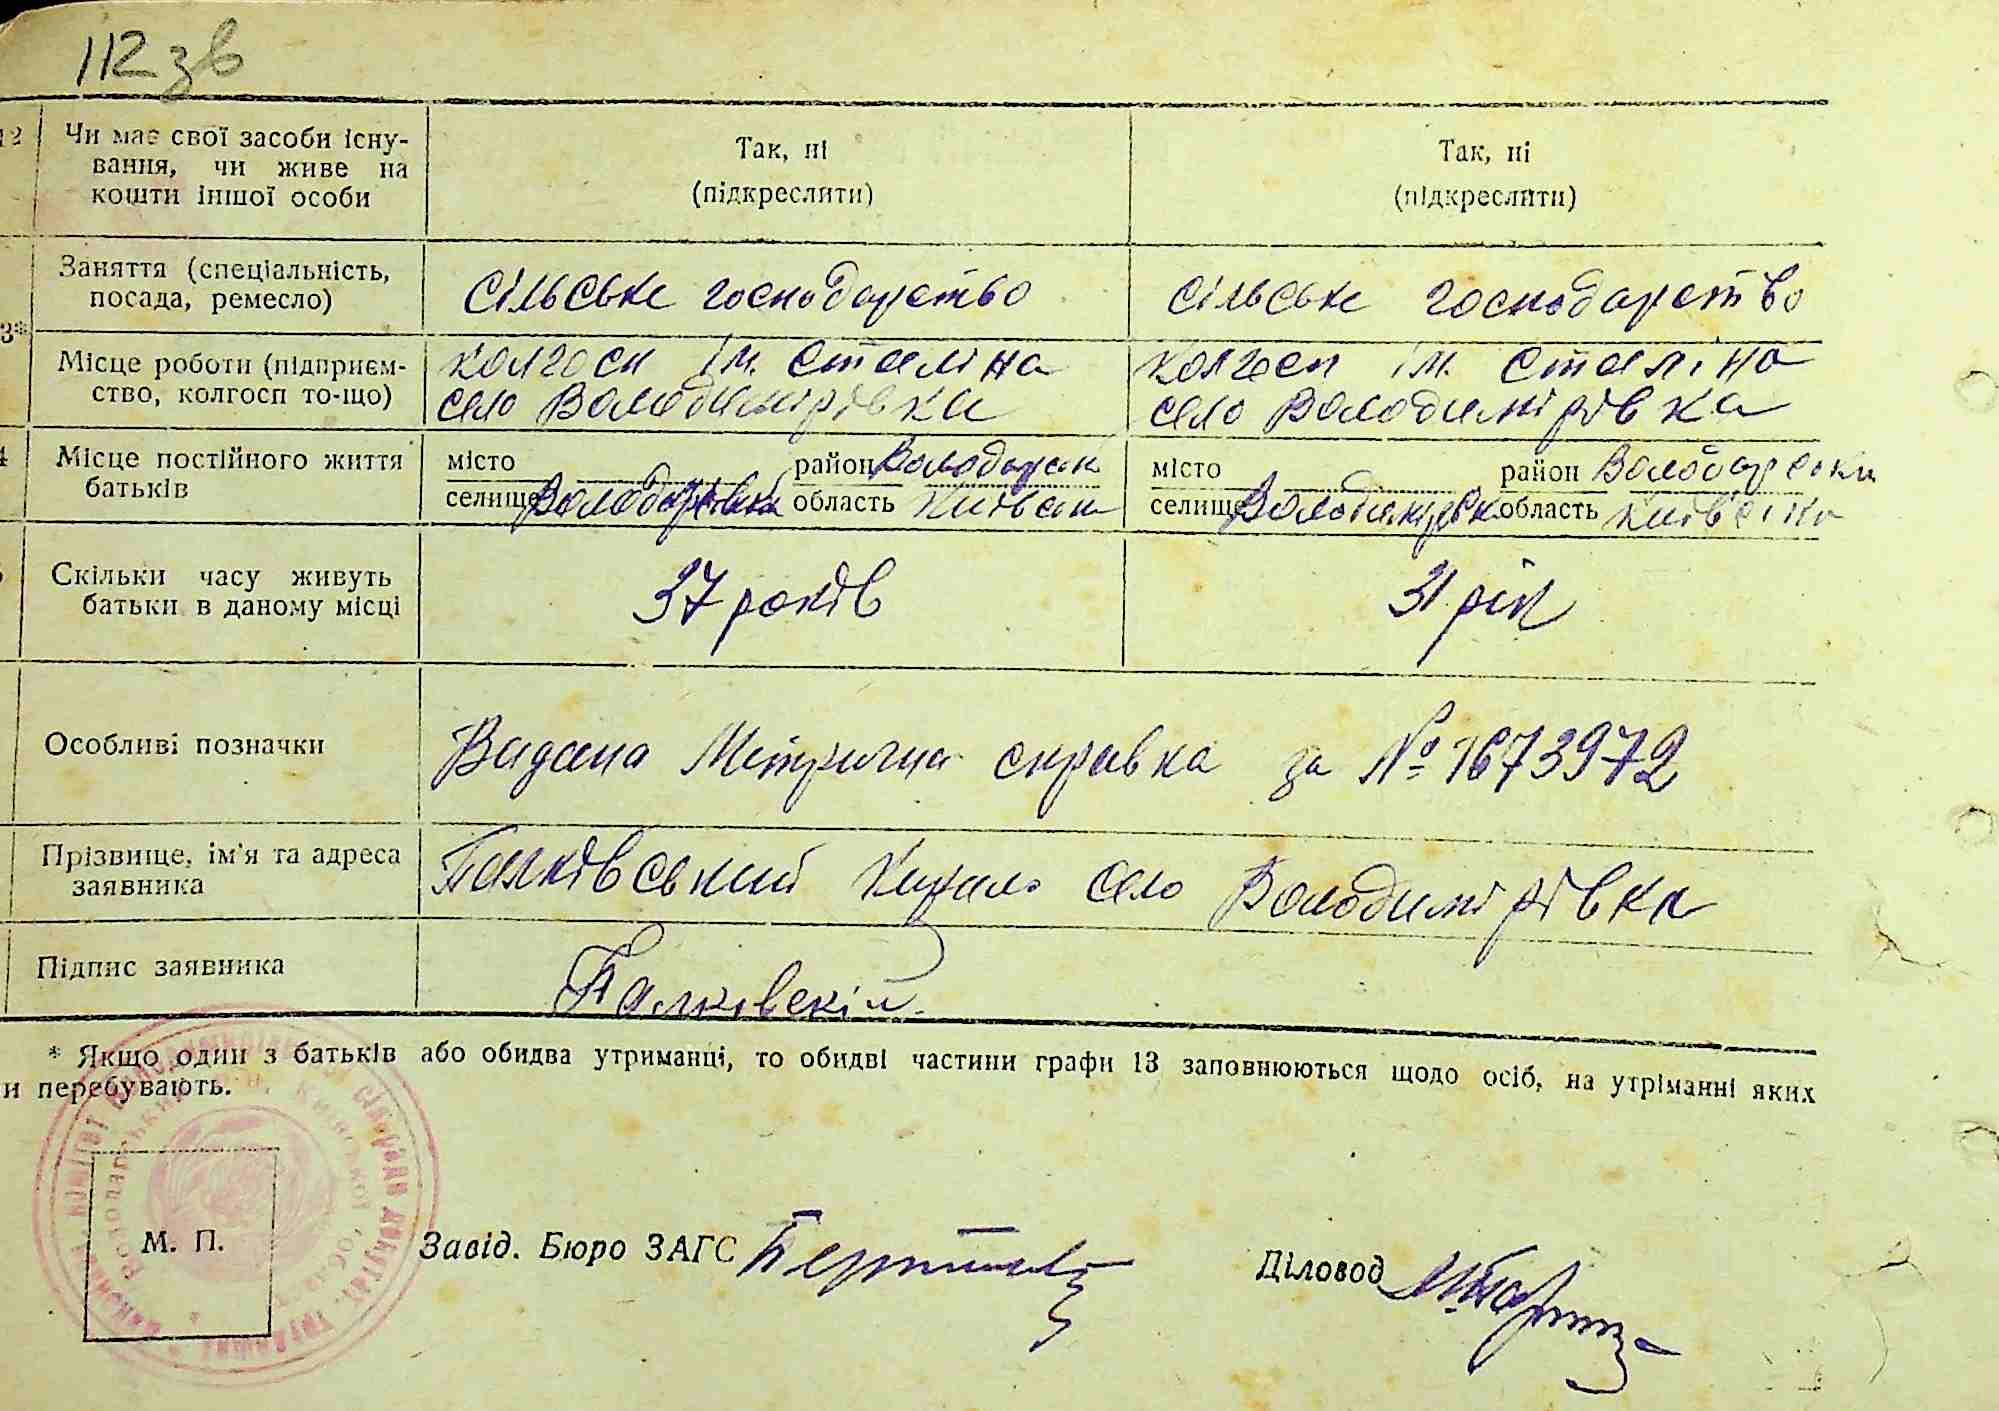 112 зв
12 Чи має свої засоби існу-
вання, чи живе на
кошти іншої особи
Так, ні
(підкреслити)
Так, ні
(підкреслити)
Заняття (спеціальність,
посада, ремесло)
сільське господарство
сільське господарство
3*
Місце роботи (підприєм-
ство, колгосп то-що)
колгосп ім. Сталіна
село Володимирівка
колгосп ім. Сталіна
село Володимирівка
4 Місце постійного життя
батьків
місто район Володарськ
селище область Київськ
місто район Володарський
селище Володимирівк область
Скільки часу живуть
батьки в даному місці
37 років
31 рік
Особливі позначки
Видана Метрична справка за № 1673972
Прізвище, ім'я та адреса
заявника
Палківський Кирило село Володимирівка
Підпис заявника
Палковскій
* Якщо один з батьків або обидва утриманці, то обидві частини графи 13 заповнюються щодо осіб, на утріманні яких
и перебувають.
М. П.
Завід. Бюро ЗАГС
Діловод